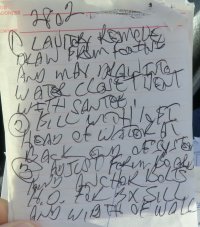 2802
① LAUNDRY REMOVE
DRAW FROM FOOTING
AND MAY DRAW INTO
WATER CLOSET VENT
WITH SANTEE
② FILL WITH 4 FT
HEAD OF WATER AT
BACK END OF SYSTEM
③ ADJUST FORM BOARD
AND ANCHOR BOLTS
FOR 3X SILL
AND WIDTH OF WALL